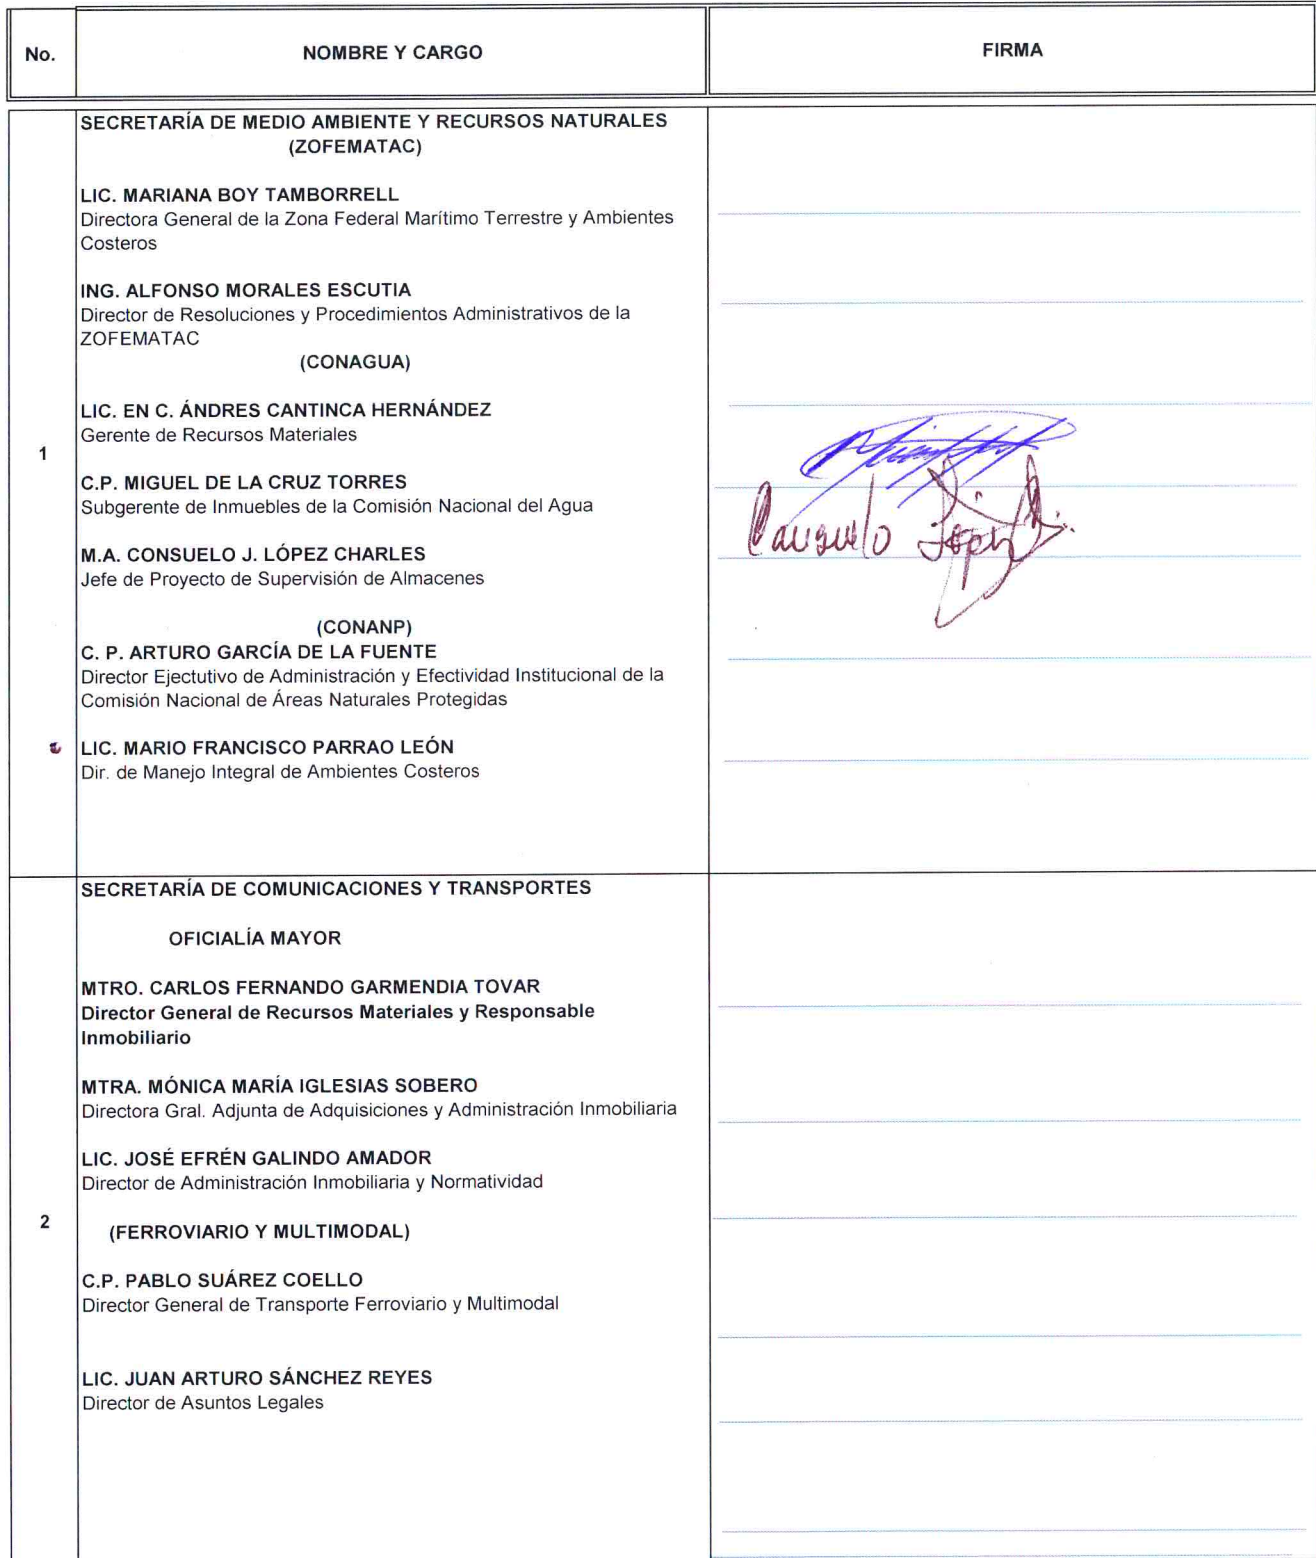 No.
NOMBRE Y CARGO
FIRMA
SECRETARÍA DE MEDIO AMBIENTE Y RECURSOS NATURALES
(ZOFEMATAC)
LIC. MARIANA BOY TAMBORRELL
Directora General de la Zona Federal Marítimo Terrestre y Ambientes
Costeros
ING. ALFONSO MORALES ESCUTIA
Director de Resoluciones y Procedimientos Administrativos de la
ZOFEMATAC
(CONAGUA)
LIC. EN C. ÁNDRES CANTINCA HERNÁNDEZ
Gerente de Recursos Materiales
1
C.P. MIGUEL DE LA CRUZ TORRES
Subgerente de Inmuebles de la Comisión Nacional del Agua
Consuelo López
M.A. CONSUELO J. LÓPEZ CHARLES
Jefe de Proyecto de Supervisión de Almacenes
(CONANP)
C. P. ARTURO GARCÍA DE LA FUENTE
Director Ejectutivo de Administración y Efectividad Institucional de la
Comisión Nacional de Áreas Naturales Protegidas
LIC. MARIO FRANCISCO PARRAO LEÓN
Dir. de Manejo Integral de Ambientes Costeros
SECRETARÍA DE COMUNICACIONES Y TRANSPORTES
OFICIALÍA MAYOR
MTRO. CARLOS FERNANDO GARMENDIA TOVAR
Director General de Recursos Materiales y Responsable
Inmobiliario
MTRA. MÓNICA MARÍA IGLESIAS SOBERO
Directora Gral. Adjunta de Adquisiciones y Administración Inmobiliaria
LIC. JOSÉ EFRÉN GALINDO AMADOR
Director de Administración Inmobiliaria y Normatividad
2
(FERROVIARIO Y MULTIMODAL)
C.P. PABLO SUÁREZ COELLO
Director General de Transporte Ferroviario y Multimodal
LIC. JUAN ARTURO SÁNCHEZ REYES
Director de Asuntos Legales